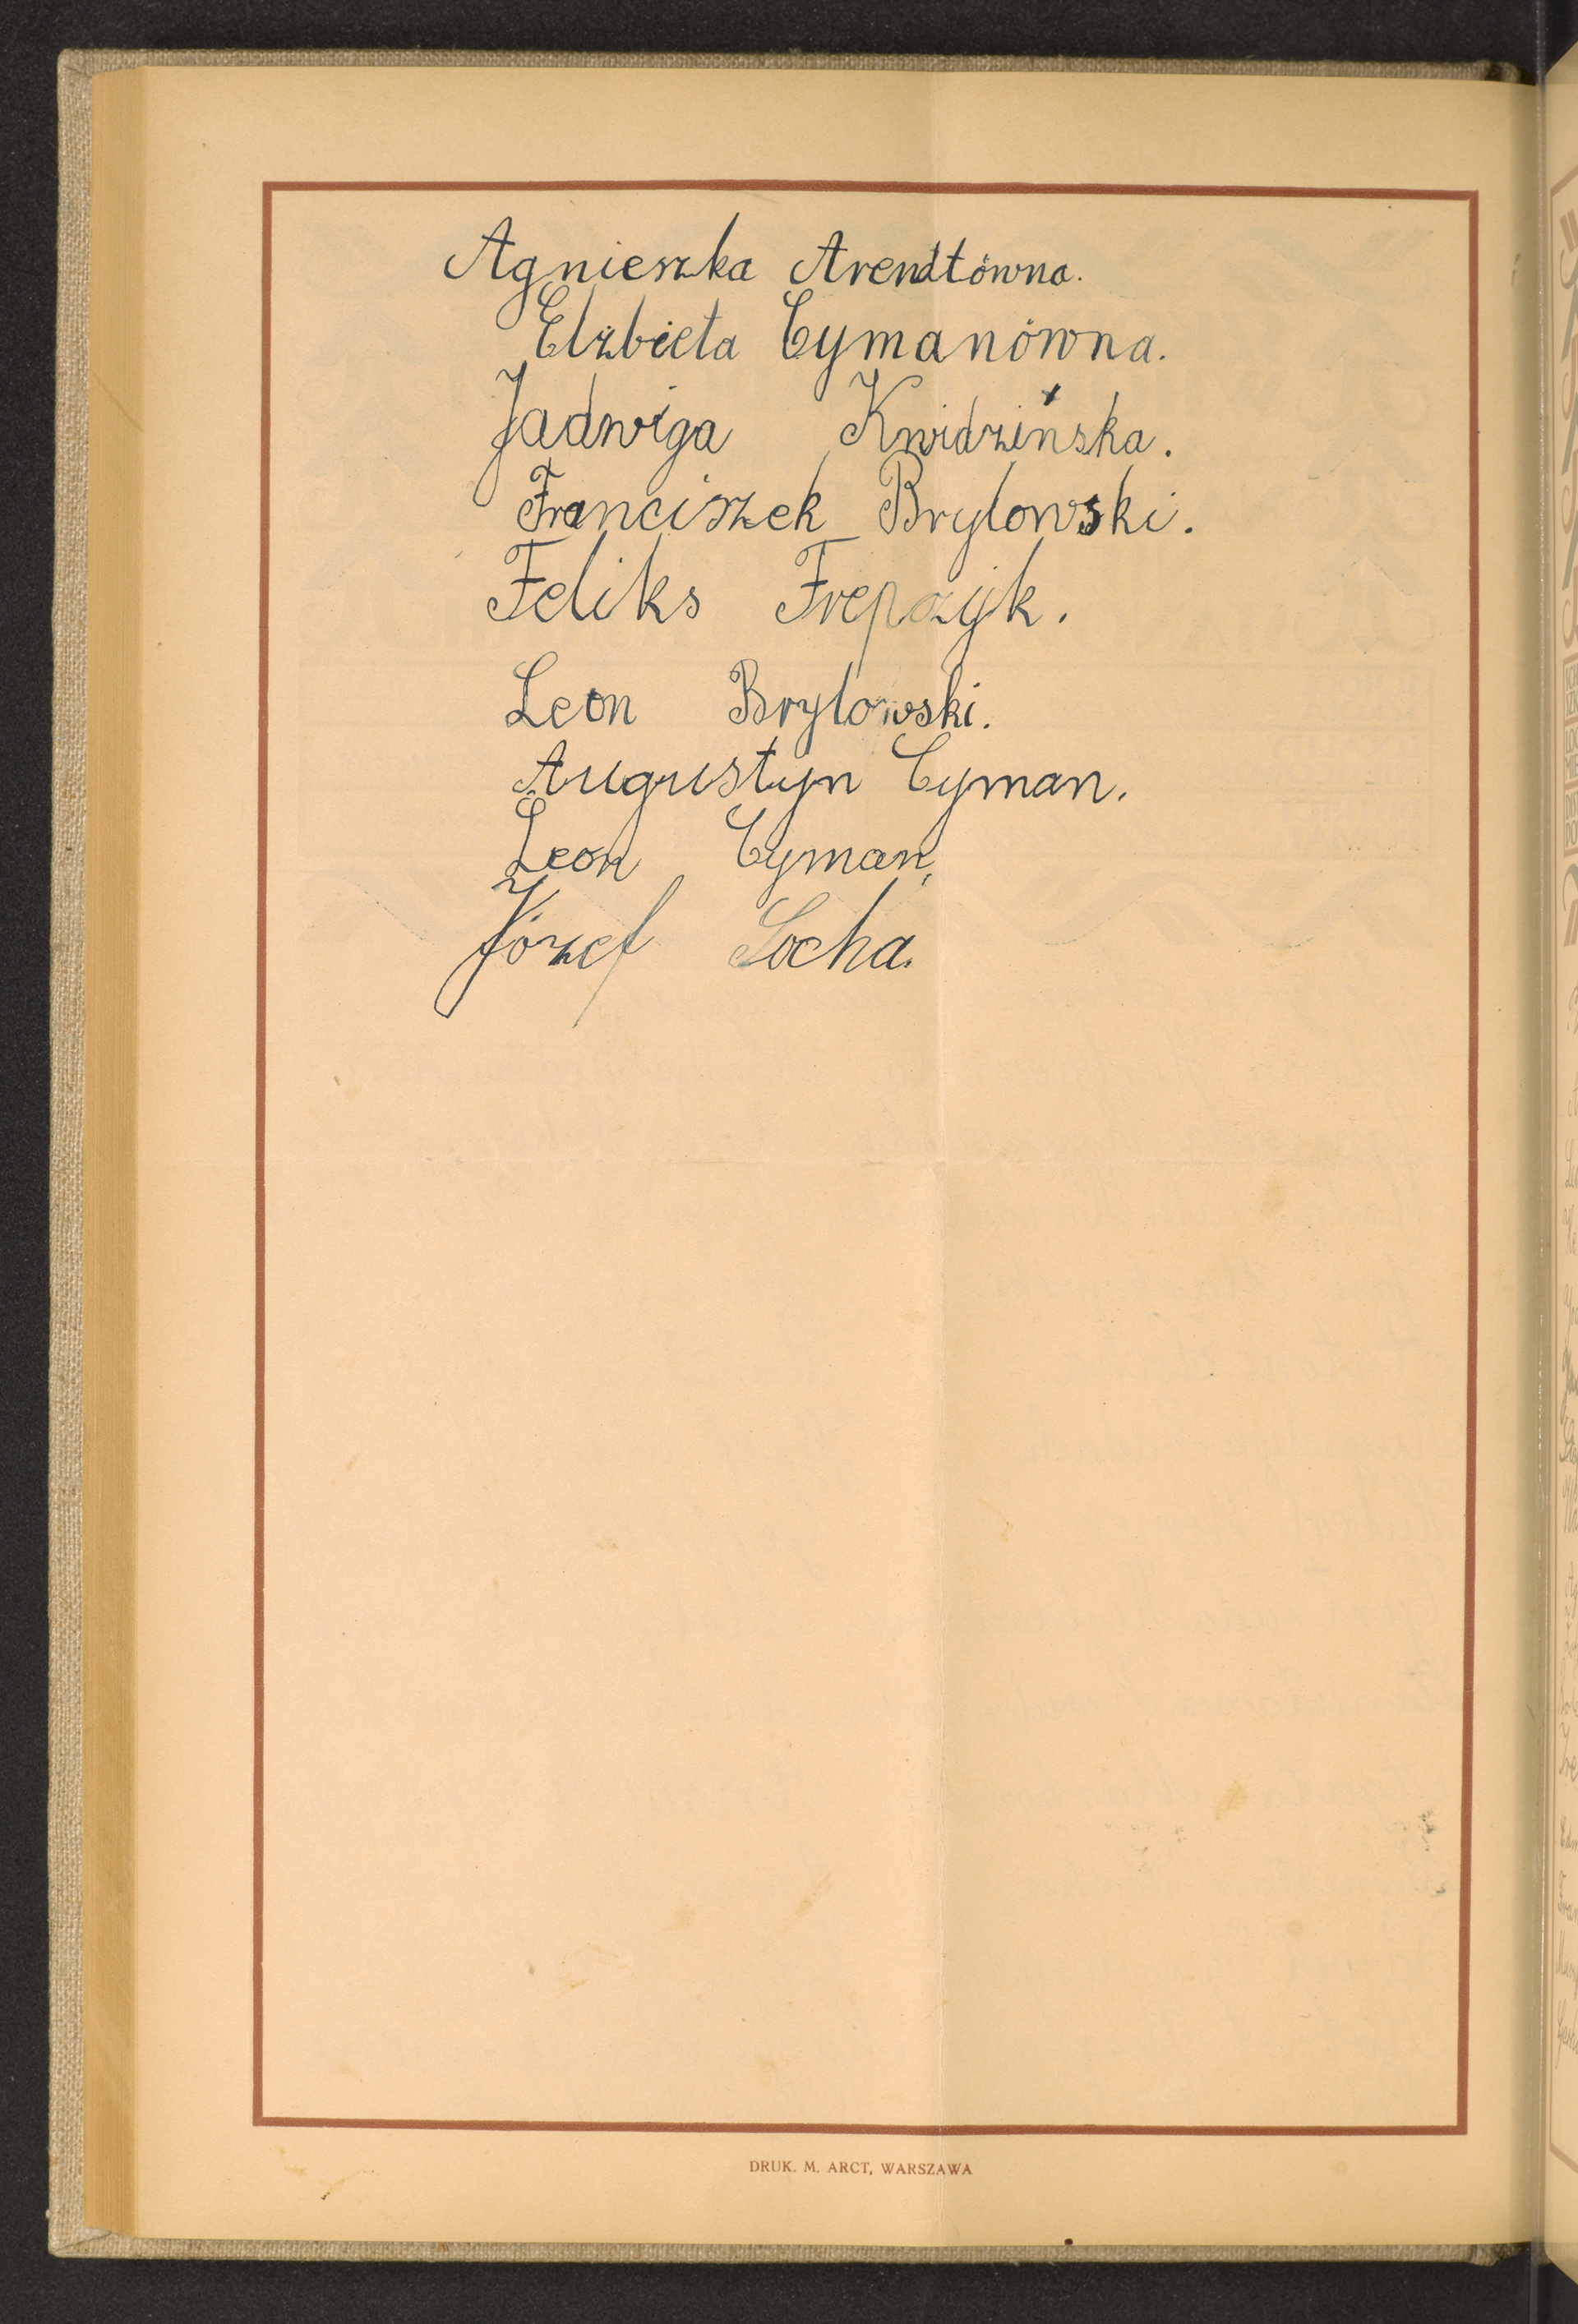 Agnieszka Arendtówna.
Elżbieta Cymanówna.
Jadwiga Kwidzińska.
Franciszek Brylowski.
Feliks Frepczyk.
Leon Brylowski.
Augustyn Cyman.
Leon Cyman,
Józef Socha.
DRUK. M. ARCT, WARSZAWA